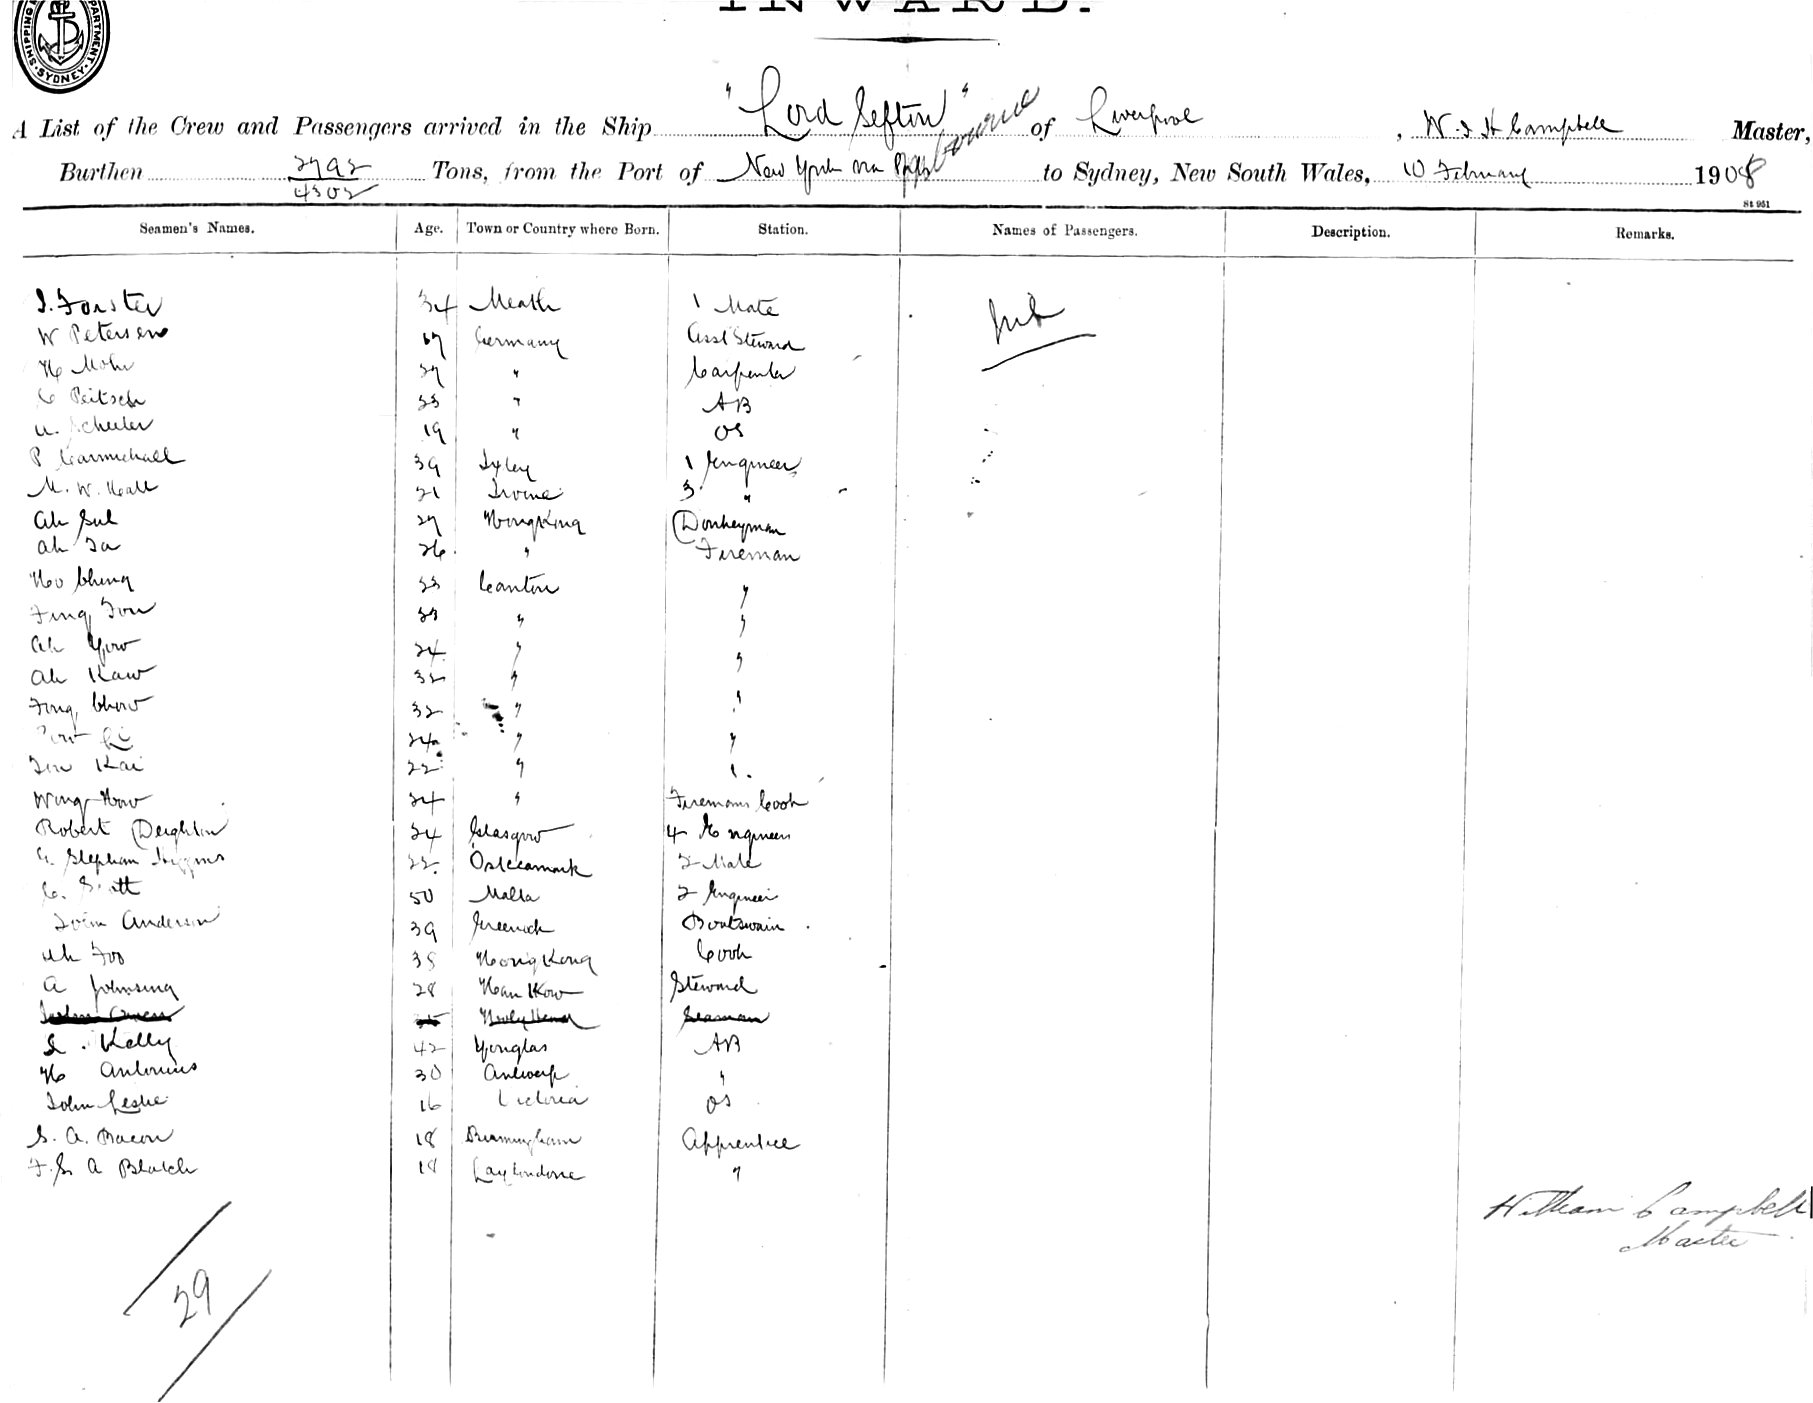 INWARD.
SHIPPING DEPARTMENT SYDNEY
A List of the Crew and Passengers arrived in the Ship "Lord Sefton" of Liverpool, W. J. H Campbell Master,
Burthen 2792 / 4303 Tons, from the Port of New York via Melbourne to Sydney, New South Wales, 10 February 1908
St 951
Seamen's Names. Age. Town or Country where Born. Station. Names of Passengers. Description. Remarks.
J. Forster 34 Meath 1 Mate Nil
W Petersen 17 Germany Asst Steward
H Mohr 27 " Carpenter
C Peitsch 23 " AB
Scheeler 19 " OS
P Carmichael 39 1 Engineer
M. W. Hall 21 Irvine 3 "
Ah Sul 27 HongKong Donkeyman
Ah 26 " Fireman
Ho Ching 33 Canton "
Fong 33 " "
Ah Yow 24 " "
Ah Kaw 32 " "
Fong Chow 32 " "
24 " "
Kai 22 " "
Wong How 24 " Firemans Cook
Robert Deighton 24 Glasgow 4 Engineer
Stephen Higgins 22 2 Mate
C. Scott 50 Malta 2 Engineer
John Anderson 39 Greenock Boatswain
Ah Foo 38 HongKong Cook
A Johnsing 28 HanKow Steward
John Owen HolyHead Seaman
J. Kelly 42 AB
H Antonius 30 Antwerp "
John Leslie 16 Victoria OS
S. A. Bacon 18 Birmingham Apprentice
F. G. A Blatch 18 Laytonstone "
William Campbell
Master
29